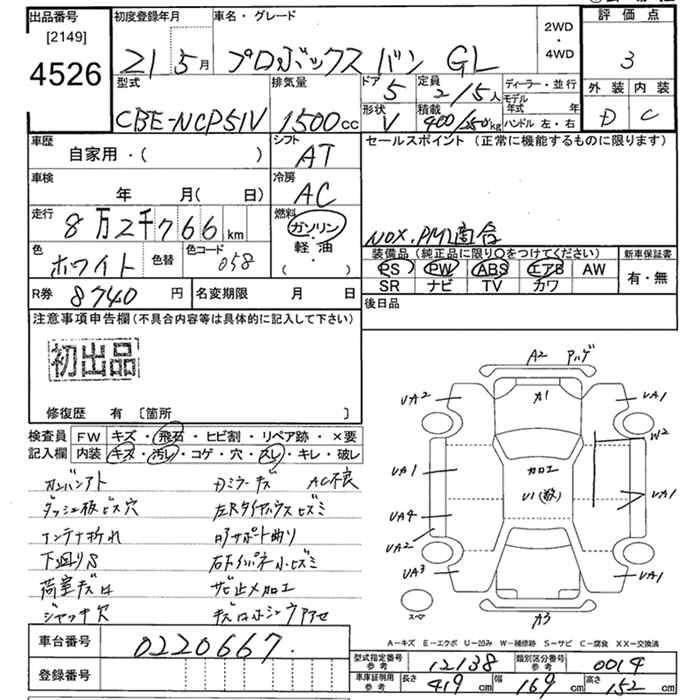 出品番号
[2149]
4526
初度登録年月
21 5月
車名・グレード
プロボックス バン GL
2WD
・
4WD
評価点
3
型式
CBE-NCP51V
排気量
1500cc
ドア 5
定員 2/5人
ディーラー・並行
形状 V
積載 400/250kg
モデル年式 年
ハンドル 左・右
外装 内装
D C
車歴
自家用・( )
シフト
AT
セールスポイント (正常に機能するものに限ります)
車検
年 月( 日)
冷房
AC
走行
8万2千766km
燃料
ガソリン
・
軽油
・
( )
NOX.PM適合
色
ホワイト
色替
色コード
058
装備品 (純正品に限り○をつけてください)
PS PW ABS エアB AW
SR ナビ TV カワ
新車保証書
有・無
R券 8740円
名変期限 月 日
後日品
注意事項申告欄(不具合内容等は具体的に記入して下さい)
初出品
修復歴 有 [箇所 ]
検査員
記入欄
FW キズ・飛石・ヒビ割・リペア跡・×要
内装 キズ・汚レ・コゲ・穴・スレ・キレ・破レ
ダッシュ板ビス穴
アンテナ折れ
下廻りS
荷室キズ
ジャッキ欠
Dミラーキズ AC不良
石下インパネ小ヒズミ
A2
UA2
A1
UA1
W2
UA1
カロエ
U1(数)
UA1
UA4
UA2
UA3
UA1
スペア
A3
車台番号
0220667
登録番号
A-キズ E-エクボ U-凹み W-補修跡 S-サビ C-腐食 XX-交換済
型式指定番号
参考
12138
類別区分番号
参考
0014
車庫証明用
参考
長さ 419cm
幅 169cm
高さ 152cm